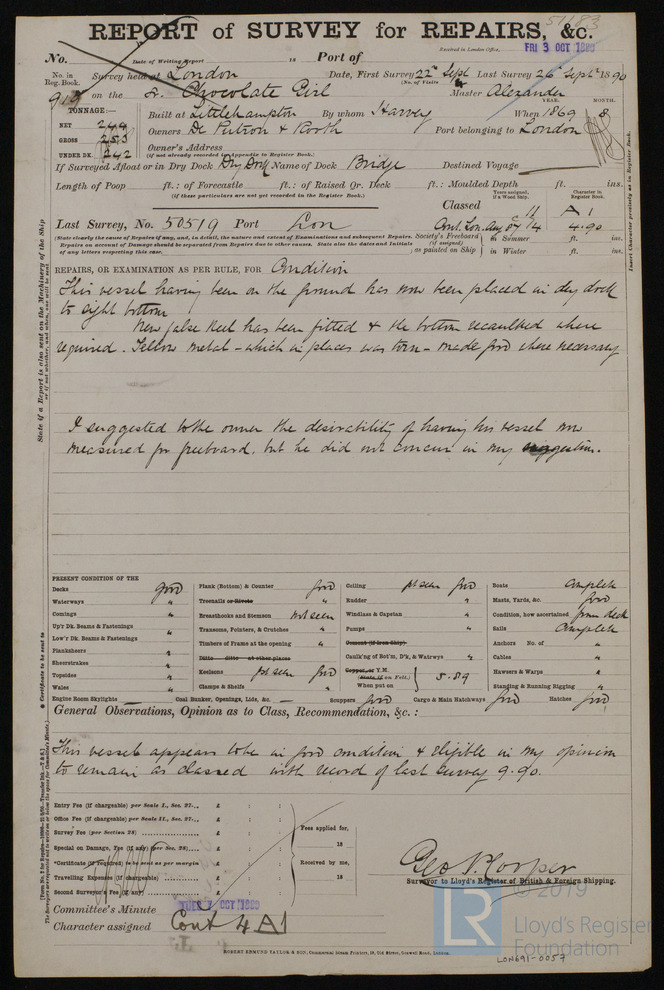 51183
REPORT of SURVEY for REPAIRS, &c.
Received in London Office, FRI 3 OCT 1890
No. Date of Writing Report 18 Port of
No. in Reg. Book. Survey held at London Date, First Survey 22nd Sept Last Survey 26 Septr 1890
(No. of Visits
919 on the Sr. Chocolate Girl Master Alexander
TONNAGE:— YEAR. MONTH.
Built at Littlehampton By whom Harvey When 1869 8
NET 244
GROSS 253 Owners De Putron & Port belonging to London
UNDER DK. 242 Owner's Address
(if not already recorded in Appendix to Register Book.)
If Surveyed Afloat or in Dry Dock Dry Dock Name of Dock Bridge Destined Voyage
Length of Poop ft.: of Forecastle ft.: of Raised Qr. Deck ft.: Moulded Depth ft. ins.
(if these particulars are not yet recorded in the Register Book.)
Years assigned, if a Wood Ship. Character in Register Book.
Classed 11 A 1
Last Survey, No. 50519 Port Lon Cont. Lon. Aug 87 14 4.90
(State clearly the cause of Repairs if any, and, in detail, the nature and extent of Examinations and subsequent Repairs.
Repairs on account of Damage should be separated from Repairs due to other causes. State also the dates and Initials
of any letters respecting this case.
Society's Freeboard (if assigned) as painted on Ship in Summer ft. ins.
in Winter ft. ins.
REPAIRS, OR EXAMINATION AS PER RULE, FOR Condition
This vessel having been on the ground has now been placed in dry dock
to sight bottom
New false keel has been fitted & the bottom recaulked where
required. Yellow metal – which in places was torn – made good where necessary
I suggested to the owner the desirability of having his vessel now
measured for freeboard, but he did not concur in my suggestion.
PRESENT CONDITION OF THE
Decks good
Waterways "
Comings "
Up'r Dk. Beams & Fastenings "
Low'r Dk. Beams & Fastenings "
Planksheers "
Sheerstrakes "
Topsides "
Wales "
Plank (Bottom) & Counter good
Treenails or Rivets "
Breasthooks and Stemson not seen
Transoms, Pointers, & Crutches "
Timbers of Frame at the opening "
Ditto Ditto at other places
Keelsons pt seen good
Clamps & Shelfs "
Ceiling pt seen good
Rudder "
Windlass & Capstan "
Pumps "
Cement (if Iron Ship)
Caulk'ng of Bot'm, D'k, & Watrwys "
Copper, or Y.M. (State if on Felt.) When put on 5.89
Boats complete
Masts, Yards, &c. good
Condition, how ascertained from deck
Sails complete
Anchors No. of "
Cables "
Hawsers & Warps "
Standing & Running Rigging "
Engine Room Skylights — Coal Bunker, Openings, Lids, &c. — Scuppers good Cargo & Main Hatchways good Hatches good
General Observations, Opinion as to Class, Recommendation, &c.:
This vessel appears to be in good condition & eligible in my opinion
to remain as classed with record of last survey 9.90.
Entry Fee (if chargeable) per Scale I., Sec. 27... £ : :
Office Fee (if chargeable) per Scale II., Sec. 27... £ : :
Survey Fee (per Section 28) £ : :
Special on Damage, Fee (if any) (per Sec. 28)... £ : :
*Certificate (if required) to be sent as per margin
Travelling Expenses (if chargeable) £ : :
Second Surveyor's Fee (if any) £ : :
Fees applied for, 18
Received by me, 18
Geo. N. Cooper
Surveyor to Lloyd's Register of British & Foreign Shipping.
Committee's Minute TUES 7 OCT 1890
Character assigned Cont 4 A 1
ROBERT EDMUND TAYLOR & SON, Commercial Steam Printers, 19, Old Street, Goswell Road, London.
LON691-0057
© 2019
LR Lloyd's Register Foundation
State if a Report is also sent on the Machinery of the Ship
Insert Character precisely as in Register Book.
* Certificate to be sent to